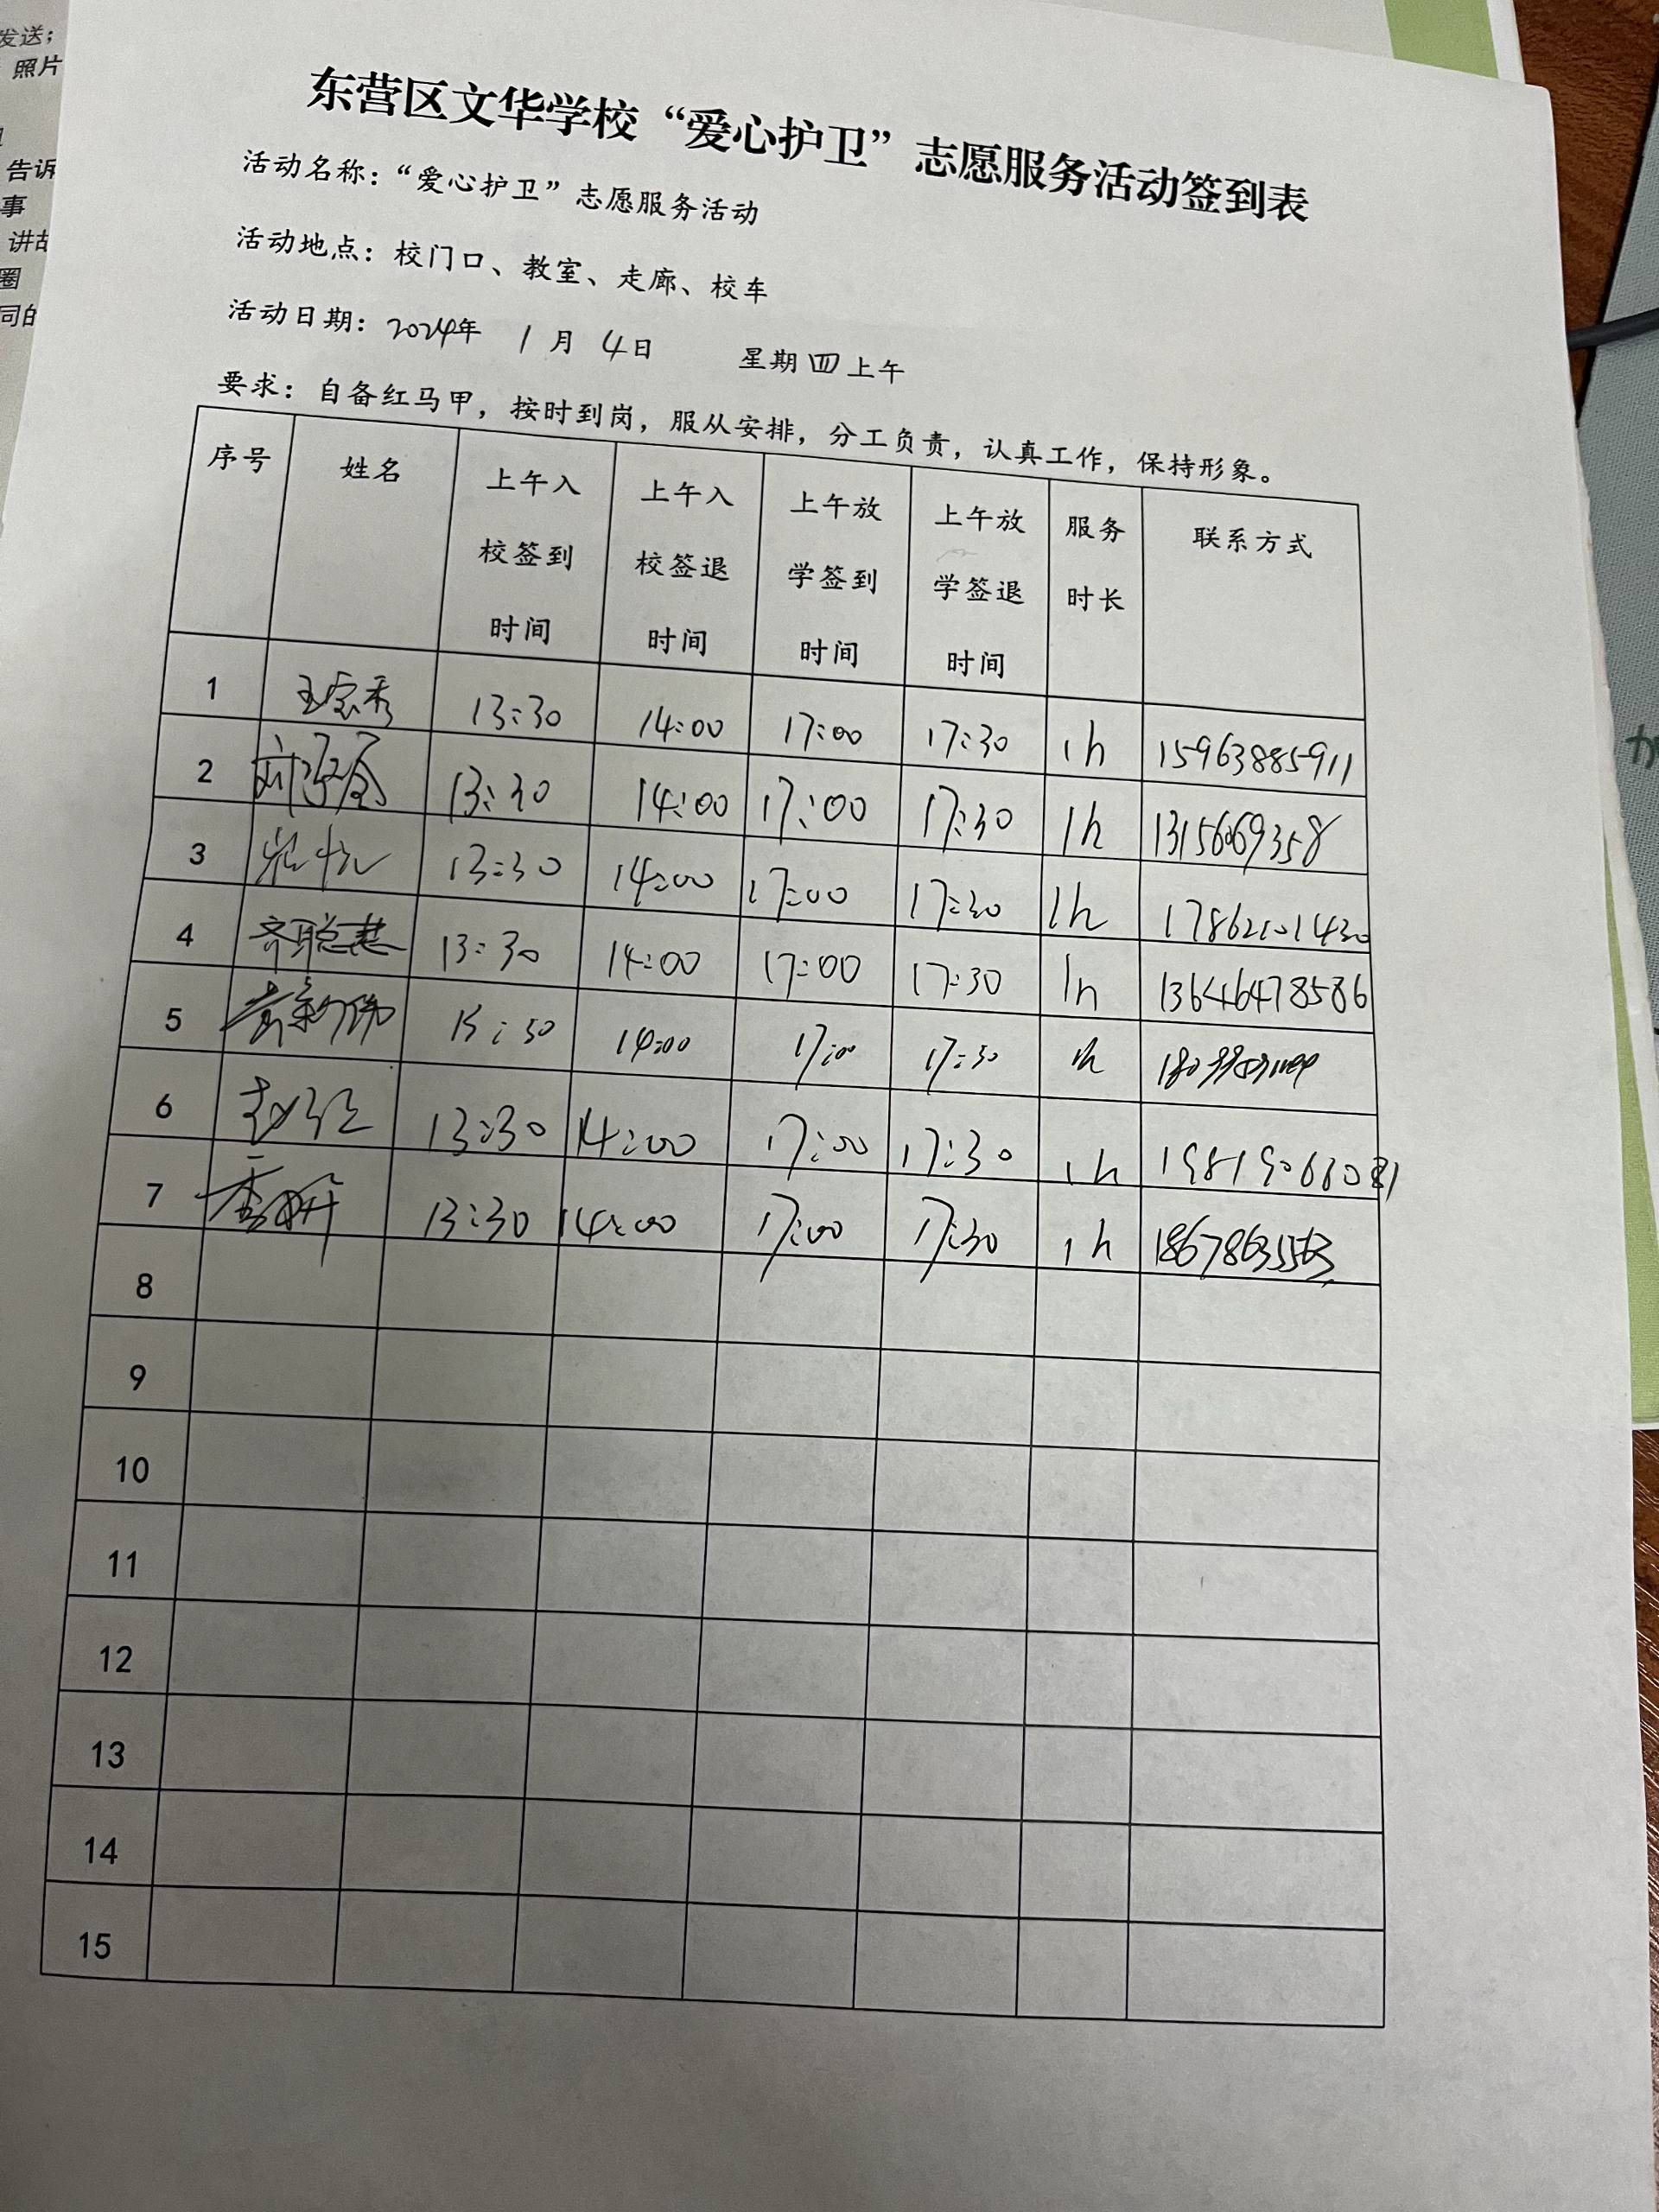 发送;
照片
告诉
事
圈
同的
东营区文华学校“爱心护卫”志愿服务活动签到表
活动名称：“爱心护卫”志愿服务活动
活动地点：校门口、教室、走廊、校车
活动日期：2024年 1月 4日 星期四上午
要求：自备红马甲，按时到岗，服从安排，分工负责，认真工作，保持形象。
序号 姓名 上午入校签到时间 上午入校签退时间 上午放学签到时间 上午放学签退时间 服务时长 联系方式
1 13:30 14:00 17:00 17:30 1h 15963885911
2 13:30 14:00 17:00 17:30 1h
3 13:30 14:00 17:00 17:30 1h
4 齐聪慧 13:30 14:00 17:00 17:30 1h 13646478586
5 13:30 14:00 17:00 17:30 1h
6 13:30 14:00 17:00 17:30 1h
7 13:30 14:00 17:00 17:30 1h
8
9
10
11
12
13
14
15